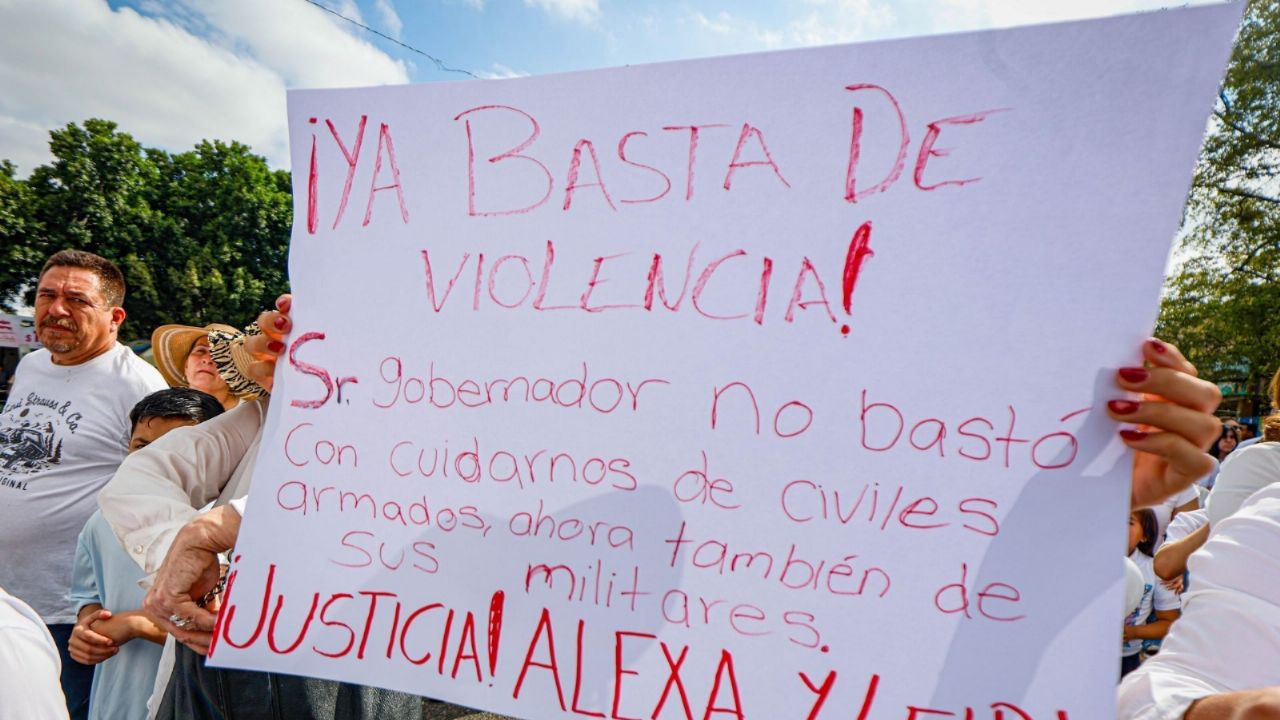 ¡YA BASTA DE
VIOLENCIA!
Sr. gobernador no bastó
Con cuidarnos de civiles
armados, ahora también de
sus militares.
¡JUSTICIA! ALEXA Y
Levi Strauss & Co.
ORIGINAL